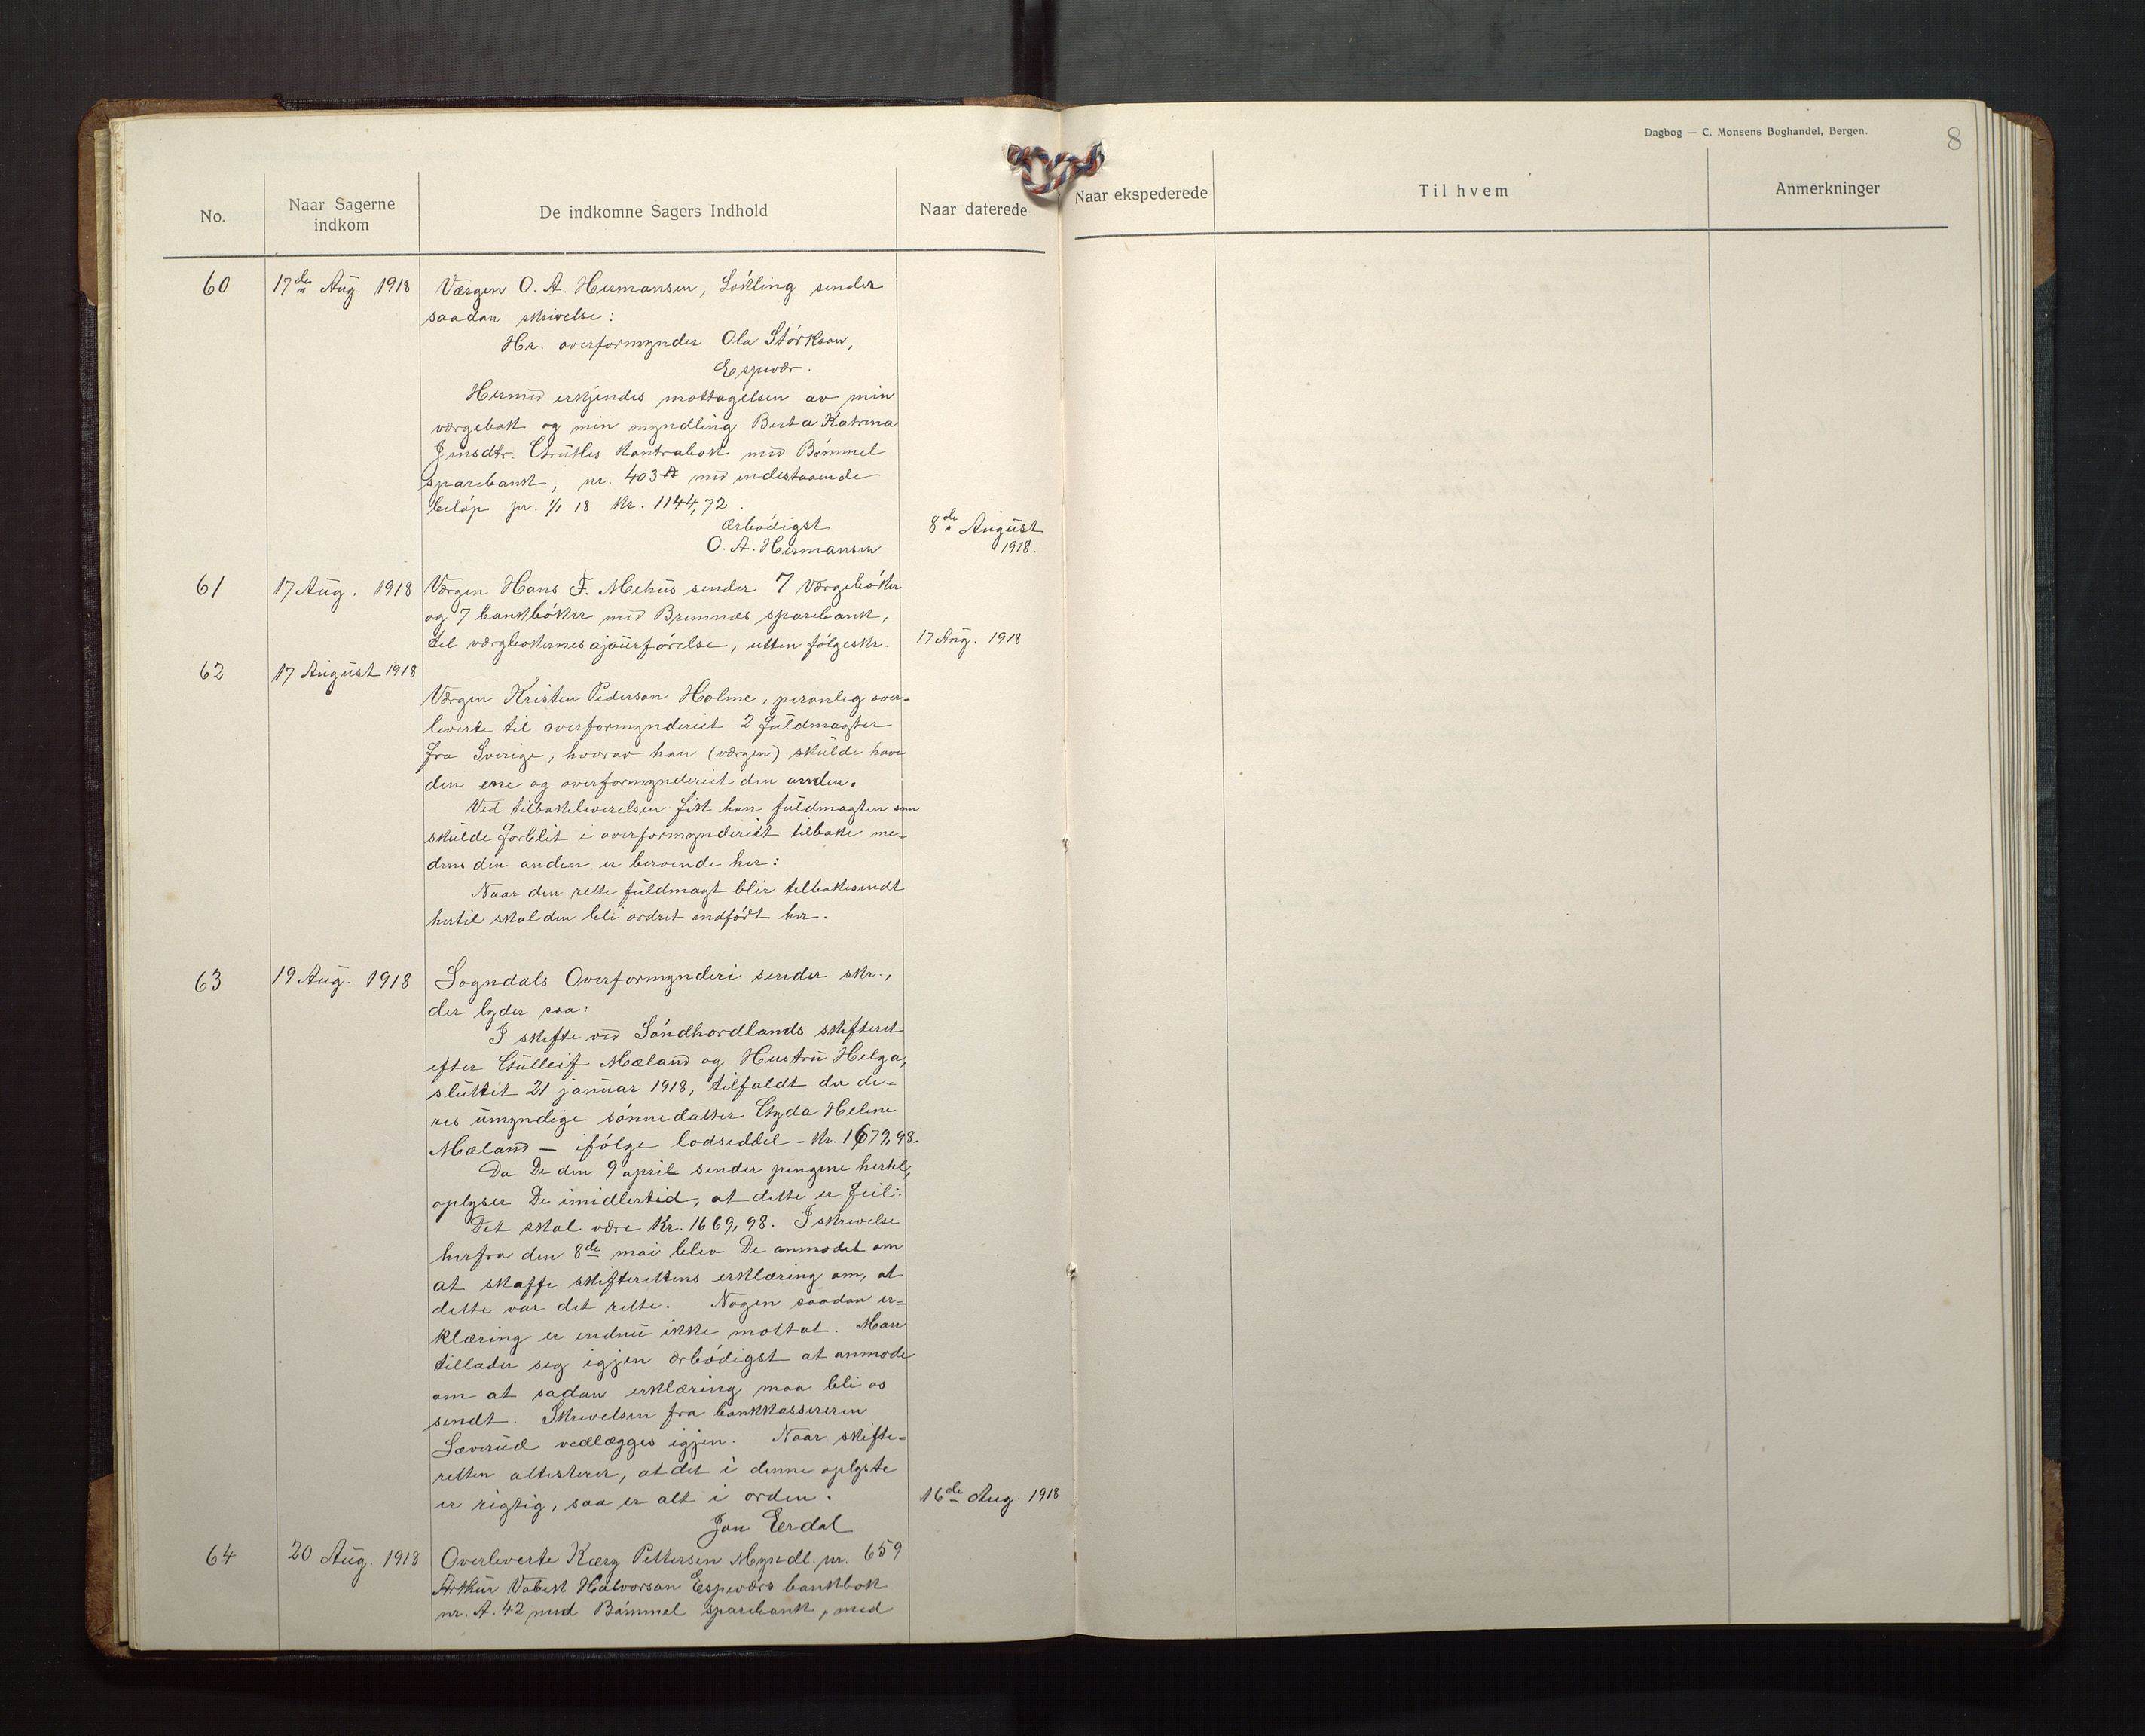 Dagbog — C. Monsens Boghandel, Bergen.
8
No.
Naar Sagerne
indkom
De indkomne Sagers Indhold
Naar daterede
Naar ekspederede
Til hvem
Anmerkninger
60 17de Aug. 1918 Værgen O. A. Hermansen, Løkling sender
saadan skrivelse:
Hr. overformynder Ola Størkson,
Espevær.
Hermed erkjendes mottagelsen av min
værgebok og min myndling Berta Katrina
Jensdtr. Grutles kontrabok med Bømmel
sparebank, nr. 403 A med indestaaende
beløp pr. 1/1 18 kr. 1144,72.
Ærbødigst
O. A. Hermansen
8de August
1918.
61 17 Aug. 1918 Værgen Hans F. Mehus sender 7 værgebøker
og 7 bankbøker med Bremnes sparebank,
til værgbokernes ajourførelse, utten følgeskr. 17 Aug. 1918
62 17 August 1918
Værgen Kristen Pederson Holme, personlig over-
leverte til overformynderiet 2 fuldmagter
fra Sverige, hvorav han (værgen) skulde have
den ene og overformynderiet den anden.
Ved tilbakeleverelsen fik han fuldmagten som
skulde forblit i overformynderiet tilbake me-
dens den anden er beroende her:
Naar den rette fuldmagt blir tilbakesendt
hertil skal den bli ordret indført her.
63 19 Aug. 1918 Sogndals Overformynderi sender skr.,
der lyder saa:
I skifte ved Søndhordlands skifteret
efter Gulleif Mæland og Hustru Helga,
sluttet 21 januar 1918, tilfaldt der de-
res umyndige sønnedatter Gyda Helene
Mæland — ifølge lodseddel - kr. 1679,98.
Da De den 9 april sender pengene hertil,
oplyser De imidlertid, at dette er feil:
Det skal være Kr. 1669,98. I skrivelse
herfra den 8de mai blev De anmodet om
at skaffe skifterettens erklæring om, at
dette var det rette. Nogen saadan er-
klæring er endnu ikke mottat. Man
tillader seg igjen ærbødigst at anmode
om at sadan erklæring maa bli os
sendt. Skrivelsen fra bankkassereren
Sæverud vedlægges igjen. Naar skifte-
retten attesterer, at det i denne oplyste
er rigtig, saa er alt i orden. 16de Aug. 1918
Jon Eerdal
64 20 Aug. 1918 Overleverte Kærg Pettersen Myndl. nr. 659
Arthur Halvorsan Espeværs bankbok
nr. A. 42 med Bømmel sparebank, med